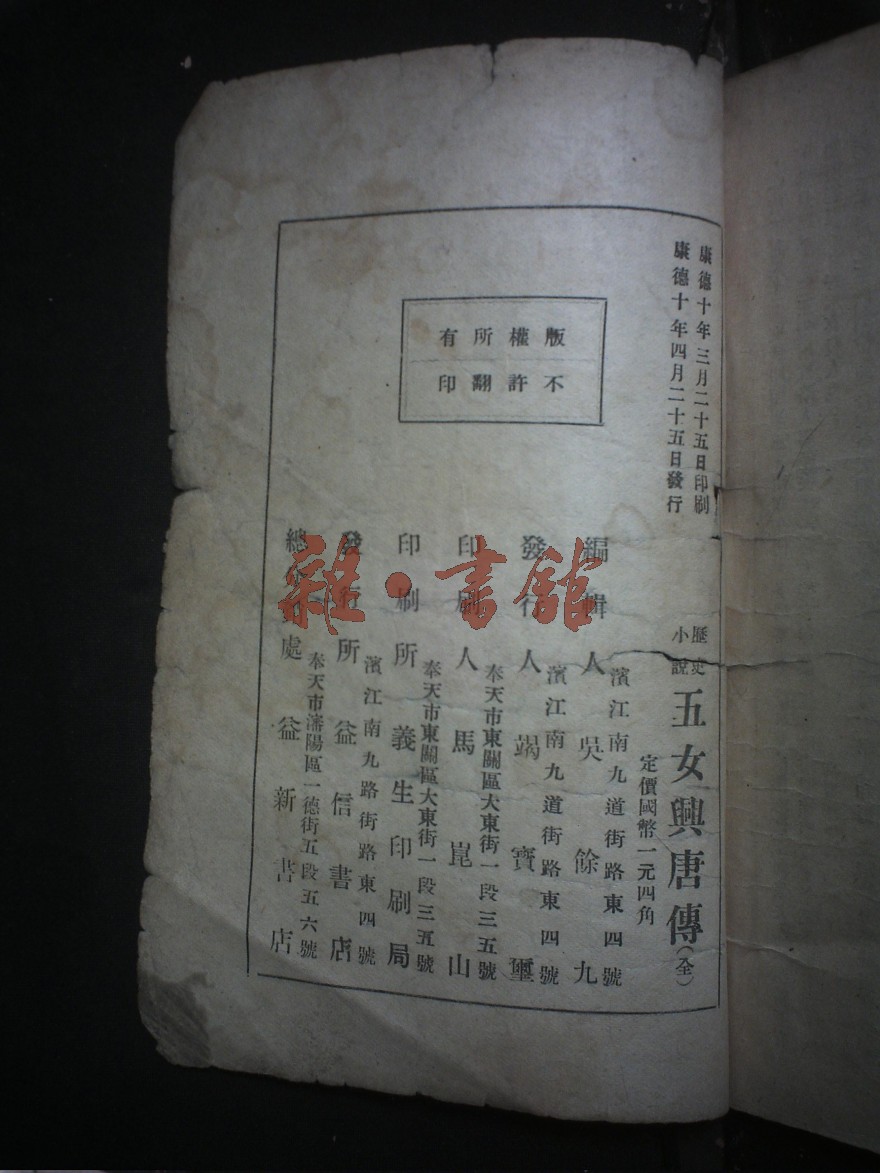 康德十年三月二十五日印刷
康德十年四月二十五日發行
歷史
小說
五女興唐傳(全)
定價國幣一元四角
版權所有
不許翻印
濱江南九道街路東四號
編輯人吳餘九
濱江南九道街路東四號
發行人竭寶璽
奉天市東關區大東街一段三五號
印刷人馬崑山
奉天市東關區大東街一段三五號
印刷所義生印刷局
濱江南九路街路東四號
發行所益信書店
奉天市瀋陽區一德街五段五六號
總處益新書店
雜·書館